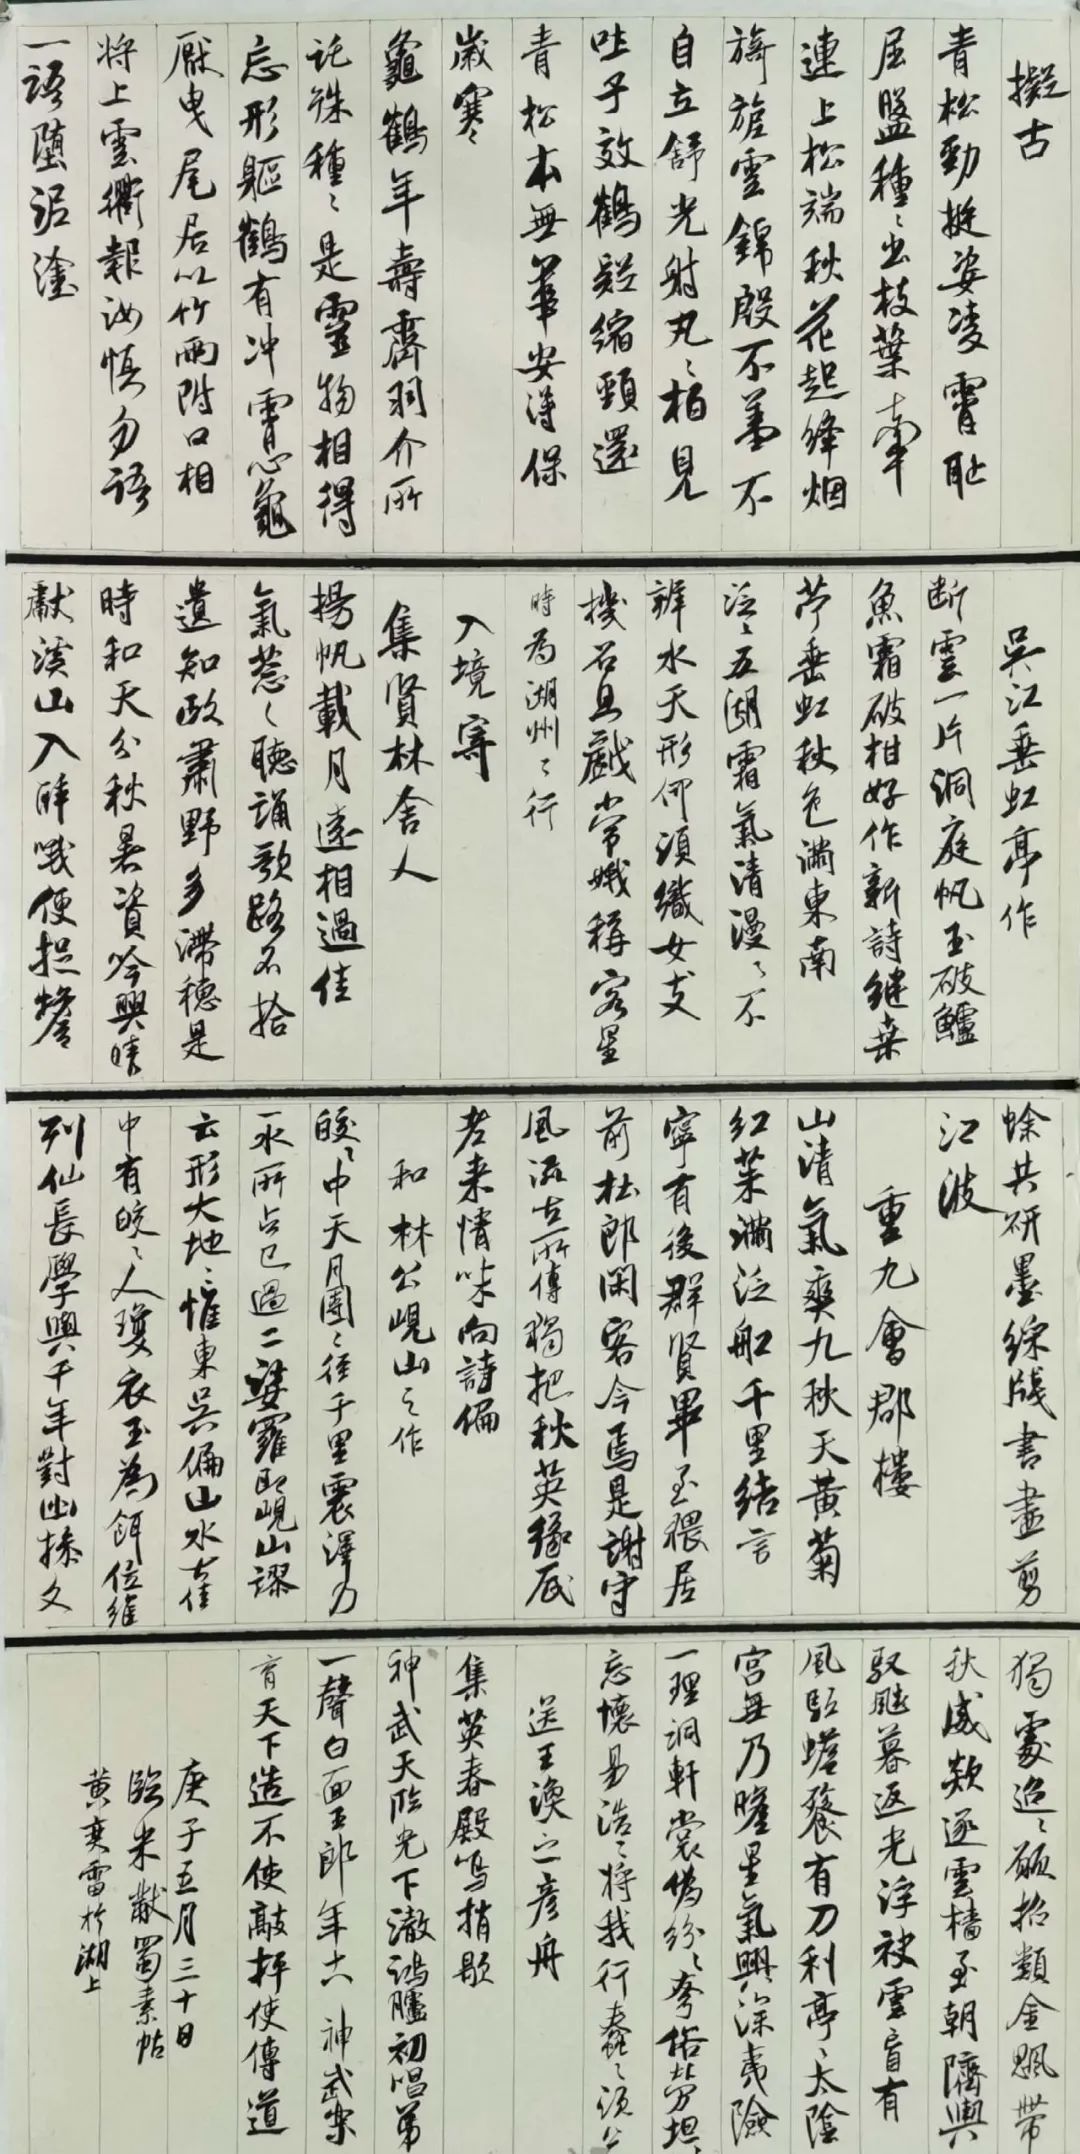 擬古
青松勁挺姿凌霄恥
屈盤種々出枝葉牽
連上松端秋花起絳烟
旖旎雲錦殷不羞不
自立舒光射丸々柏見
吐子效鶴疑縮頸還
青松本無華安得保
歲寒
龜鶴年壽齊羽介所
託殊種々是靈物相得
忘形軀鶴有冲霄心龜
厭曳尾居以竹兩附口相
將上雲衢報汝慎勿語
一語墮泥塗
吳江垂虹亭作
断雲一片洞庭帆玉破鱸
魚霜破柑好作新詩継桒
苧垂虹秋色滿東南
泛々五湖霜氣清漫々不
辨水天形何須織女支
機石且戲常娥稱客星
時為湖州之行
入境寄
集賢林舍人
揚帆載月遠相過佳
氣葱々聽誦歌路不拾
遺知政肅野多滯穗是
時和天分秋暑資吟興晴
獻溪山入醉哦便捉蟾
蜍共研墨綵牋書盡剪
江波
重九會郡樓
山清氣爽九秋天黃菊
紅茱滿泛船千里結言
寧有後群賢畢至猥居
前杜郎閑客今焉是謝守
風流古所傳獨把秋英緣底
老来情味向詩偏
和林公峴山之作
皎々中天月團々徑千里震澤乃
一水所占已過二娑羅即峴山謬
云形大地々惟東吳偏山水古佳
中有皎々人瓊衣玉為餌位維
列仙長學與千年對幽操久
獨處迢々願招類金颸帶
秋威欻逐雲檣至朝隮輿
馭飈暮返光浮袂雲盲有
風駈蟾餮有刀利亭々太陰
宮無乃瞻星氣興深夷險
一理洞軒裳偽紛々夸俗勞坦々
忘懷易浩々將我行蠢々須公
送王渙之彥舟
集英春殿鳴捎歇
神武天臨光下澈鴻臚初唱第
一聲白面王郎年十八神武樂
育天下造不使敲抨使傳道
庚子五月三十日
臨米黻蜀素帖
黃奕雷於湖上